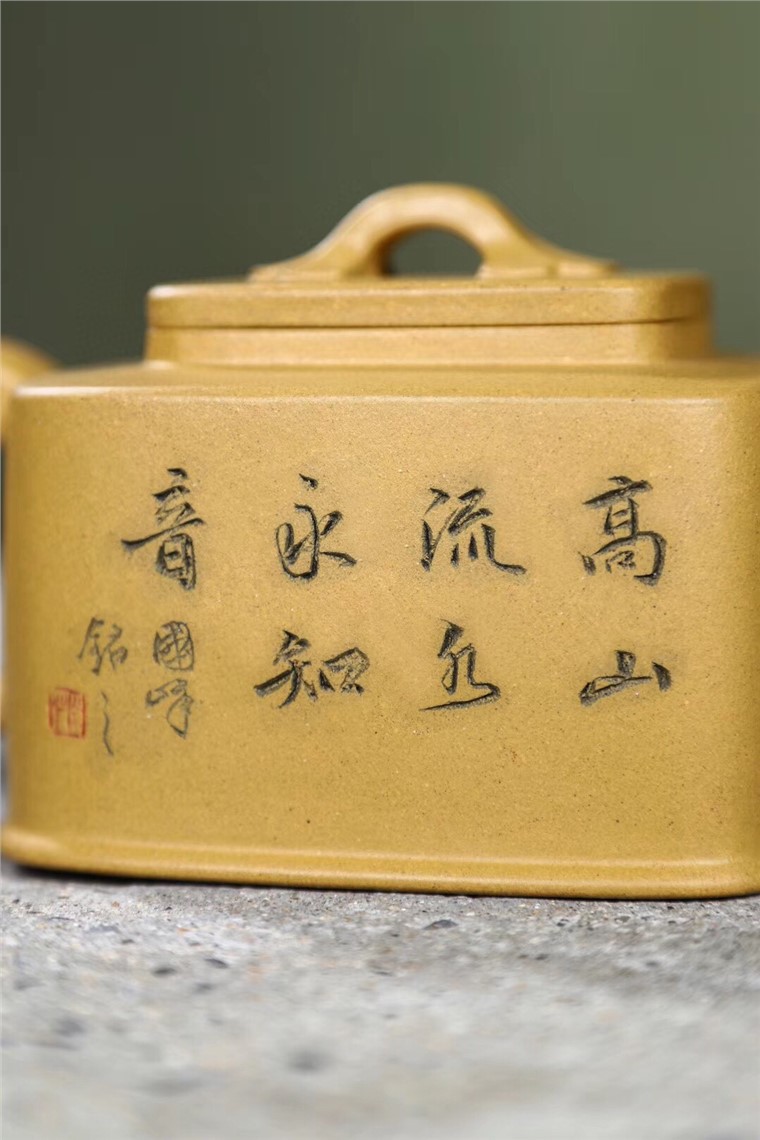 高山
流水
永知
音
國峰
銘之